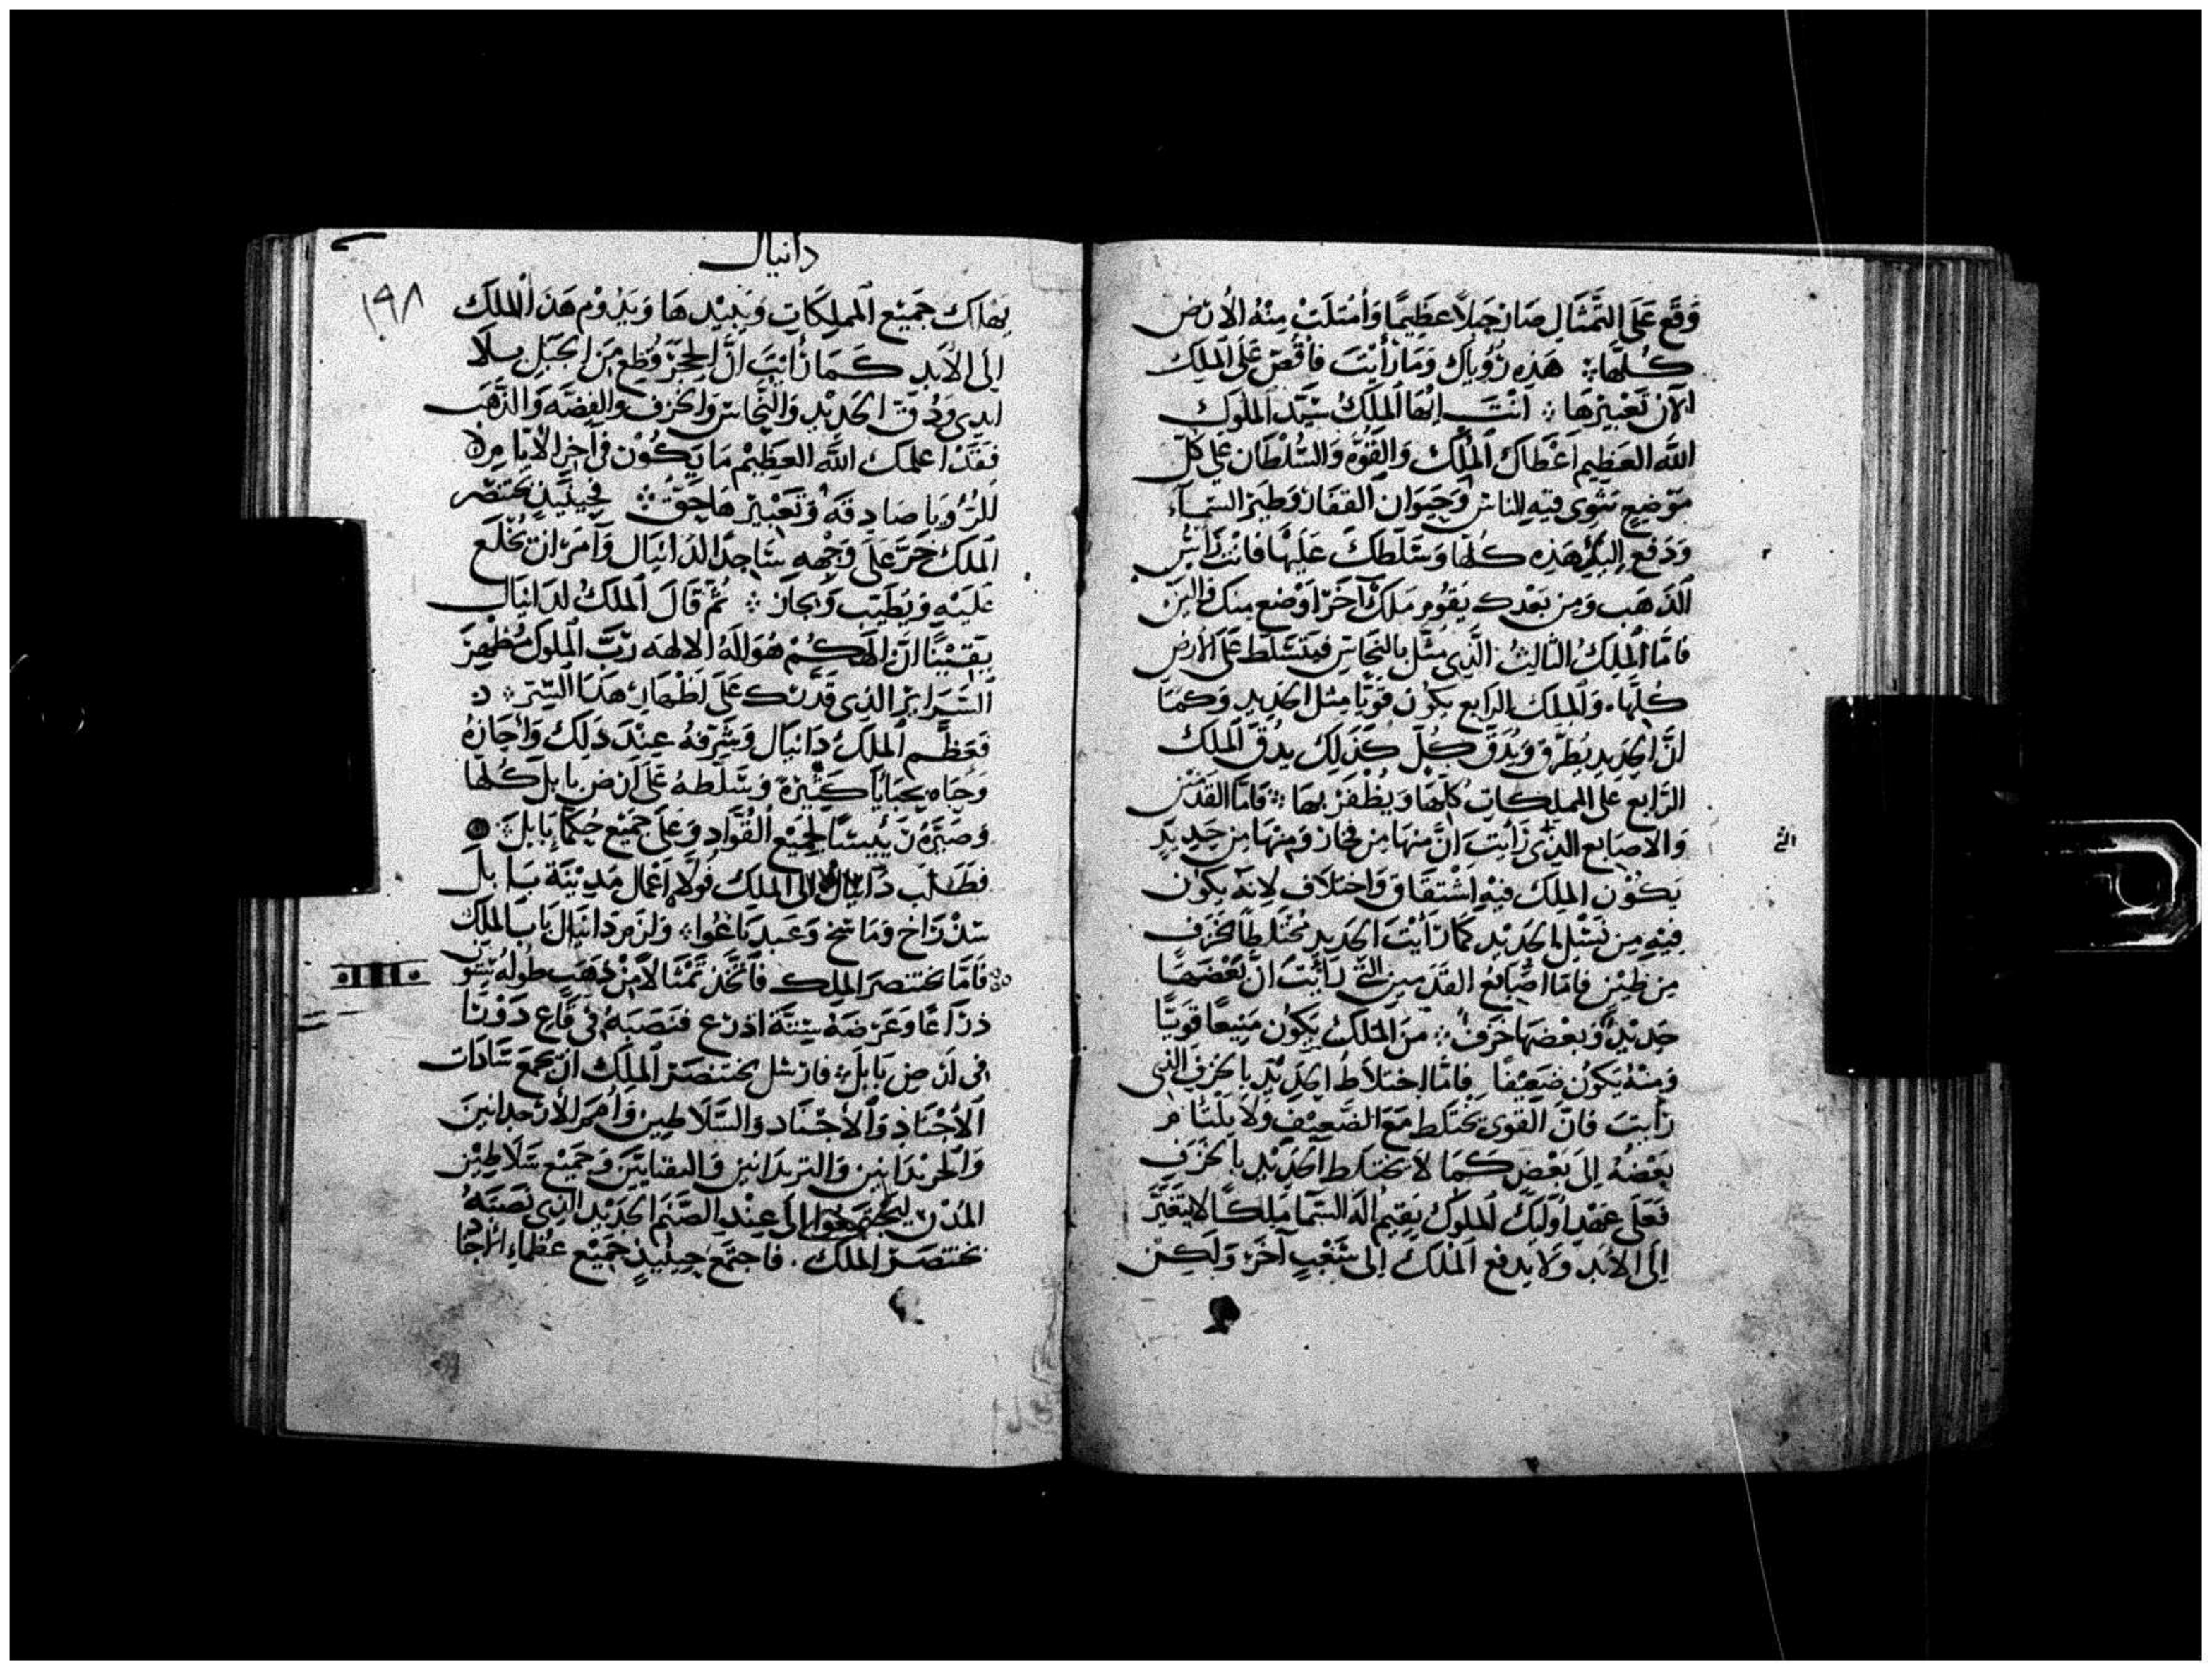 وَقَع عَلَى التِّمْثَالِ صَارَ جَبَلاً عَظِيمًا وَأَمْتَلَتْ مِنْهُ الأرض
كُلّهَا ؞ هَذِهِ رُؤْيَاكَ وَمَا رَأَيْتَ فأقُصّ عَلَى المَلِك
الآن تَعْبِيرَهَا ؞ أنْتَ أيُّهَا المَلِكُ سَيّد الملُوك
اللَّه العَظِيم أعْطَاكَ المُلْك وَالقُوَّه وَالسُّلْطَان على كُلّ
مَوْضِعٍ مَثْوى فيه للناس وَحَيَوَان القفار وَطَير السمآء
وَدَفع إليك هَذِه كلّها وَسَلّطكَ عَلَيْهَا فَانْتَ رَأسُ
الذَهَب وَمِن بَعْدك يَقُوم مَلِكٌ آخَرٌ اوْضع منك
فامّا المَلِكُ الثالِثُ الَّذِي مثّل بالنّحَاسِ فيتسَلّط عَلَى الأرْضِ
كُلّهَا ٭ وَالمَلِك الرابع يَكُون قَوِيًّا مِثل الحَدِيد وَكَمَا
انّ الحَدِيد يُطَرّق وَيُدَقّ كُلّ كَذَلِكَ يدُقّ المَلِك
الرَّابع على المملِكات كُلّهَا وَيظْفَر بِهَا ؞ فَامّا القَدَمَيْن
وَالاصَابِع الَّتِي رَأيتَ انَّ منهَا مِن فخار وَمِنهَا مِن حَدِيد
يَكُوْن المَلِك فيهِ اشْتقَاق وَاختلاف لانه يكون
فِيهِ مِن نَسْلِ الحَدِيْد كَمَا رَأَيْتَ الحَدِيد مُخْتَلِطًا بخَزَف
مِن طِيْن فامّا اصَابع القَدَميْن التي رَأيْتَ انَّ بَعْضَهَا
حَدِيْدٌ وَبَعْضهَا خزَفٌ ؞ مِنَ المَلِك يَكُون مَنِيعًا قَوِيًّا
وَمِنْهُ يَكُونُ ضَعِيْفًا فامّا اختلاطُ الحَدِيْد بالخَزَفِ الذي
رَأيتَ فَانّ القَوِىّ يَخْتَلِط مَعَ الضّعِيْف وَلاَ يَلْتَام
بَعْضهُ إلى بَعْضٍ كَمَا لا يَخْتَلِط الحَدِيْد بالخَزَفِ
فَعَلَى عَهْد أولَئِكَ المُلوك يقِيمُ اله السّمَا مَلِكًا لا يَتَغَيَّر
إلى الأبَد وَلا يدفع المُلْك إلى شَعْبٍ آخَر وَلَكِن
دانيال
١٩٨
يهْلك جَمِيْع المملِكَاتِ وَيبِيْدهَا وَيَدُوْم هَذا المُلْك
إلى الأبَد كَمَا رَأيْتَ انَّ الحَجَر قُطِع مِن الجَبَلِ بلا
ايدي وَدُقّ الحَدِيْد وَالنّحَاس وَالخزف وَالفِضّه وَالذَّهَب
فَقَدْ اعلمك اللَّه العَظِيْم مَا يَكُوْن في آخر الأيّام وَان
للرؤيا صَادِقَة وَتَعْبِيْرهَا حَقّ ؞ فحِينَئِذٍ بختنصّر
المَلِك خَرَّ عَلَى وَجْهِه سَاجدًا لدَانيَال وَأمَر ان يخْلَع
عَلَيْه وَيُطَيّب وَيجاز ؞ ثُمّ قَالَ المَلِكُ لدَانيَال
يَقِيْنًا انّ الهَكُمْ هُوَ الله الالهه رَبّ المُلوك مُظْهِر
السّرَائِر الذِى قَدّرك عَلَى اظْهَار هَذَا السِّرّ ؞
فَعَظَّم المَلِكُ دَانيَال وَشَرّفهُ عِنْدَ ذَلِكَ وَأجَازهُ
وَحباه بحبَايا كَثِيْرَة وَسَلّطه عَلَى ارْض بابِل كُلّها
وَصَيّره رَئِيسًا لجَمِيْع القُوّاد وَعَلى جَمِيْع حُكَمَاء بَابِل ؞
فَطَلَب دَانيَال إلى المَلِك فَولاّ اعْمَال مَدِيْنَة بَابِل
سَدْرَاخ وَمَاشخ وَعَبدنَاغُوا ؞ وَلزم دَانيَال بَاب المَلِك
فَامّا بختنصَر المَلِك فاتّخَذ تِمْثَالاً مِنْ ذَهَبٍ طُولهُ سِتّون
ذِرَاعًا وَعَرْضهُ ستّة اذرُع فنَصَبَهُ في قَاع دَوْرَا
فى ارْضِ بَابِل ؞ فارْسَل بختنصَر المَلِك ان يجمَع سَادَات
الأجْنَادِ وَالأجْنَاد وَالسّلاَطِين
المُدْن ليَجْتَمِعُوا إلى عِنْد الصّنَم الحَدِيْد الذِى نَصَبَهُ
بختنصَر المَلِك . فَاجتمَعَ حِينَئِذٍ جَمِيْع عُظَمَاء